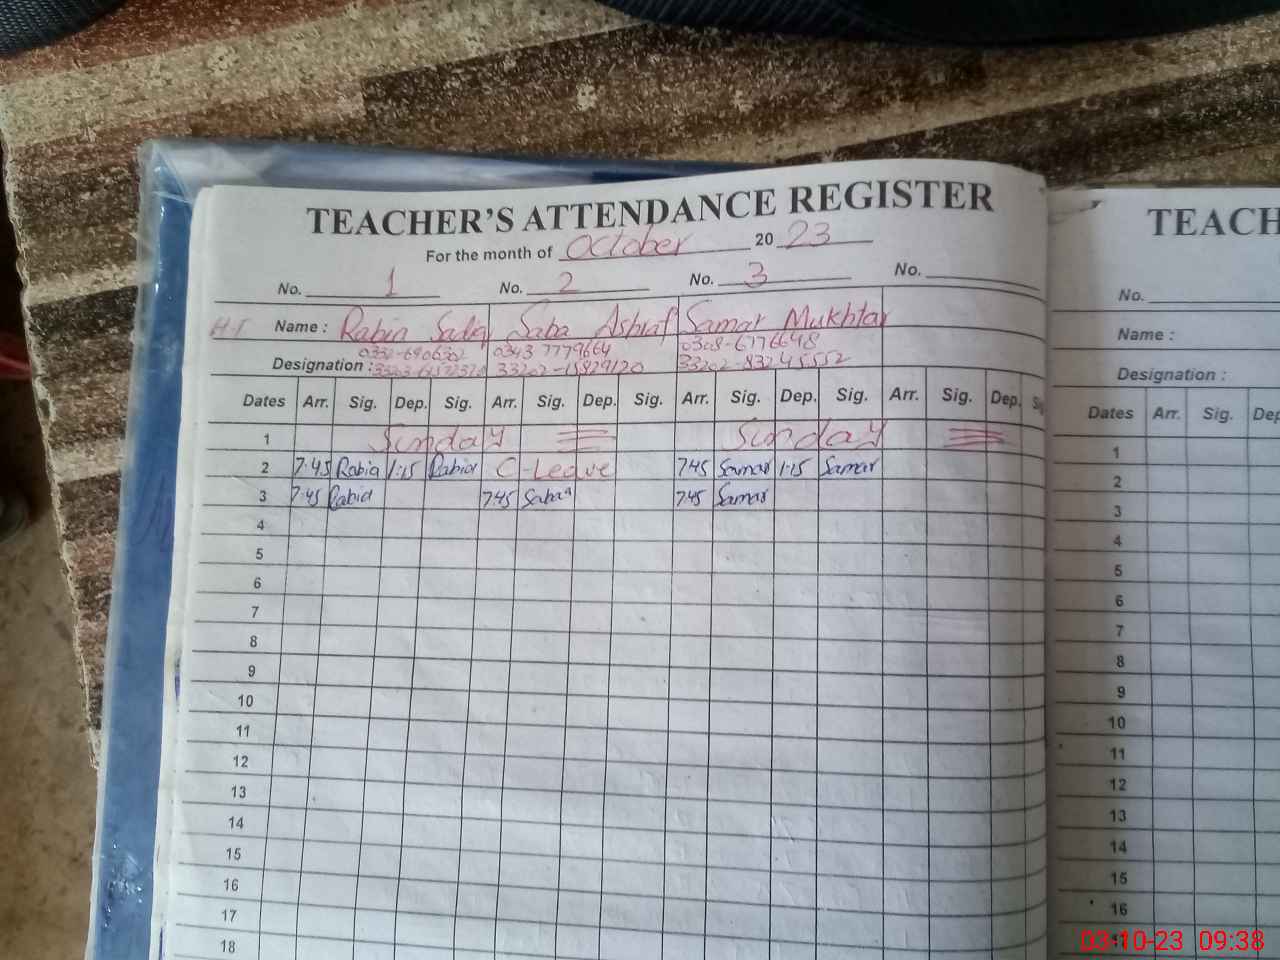 TEACHER'S ATTENDANCE REGISTER
For the month of October 2023
No. 1 No. 2 No. 3 No.
H-T Name : Rabia Sadiq Saba Ashraf Samar Mukhtar
0343 7779664 0308-6776648
Designation : 33202-15829120 33202-83245552
Dates Arr. Sig. Dep. Sig. Arr. Sig. Dep. Sig. Arr. Sig. Dep. Sig. Arr. Sig. Dep.
1 Sunday Sunday
2 7:45 Rabia 1:15 Rabia C-Leave 7:45 Samar 1:15 Samar
3 7:45 Rabia 7:45 Saba 7:45 Samar
4
5
6
7
8
9
10
11
12
13
14
15
16
17
18
TEACH
No.
Name :
Designation :
Dates Arr. Sig. Dep
1
2
3
4
5
6
7
8
9
10
11
12
13
14
15
16
03-10-23 09:38